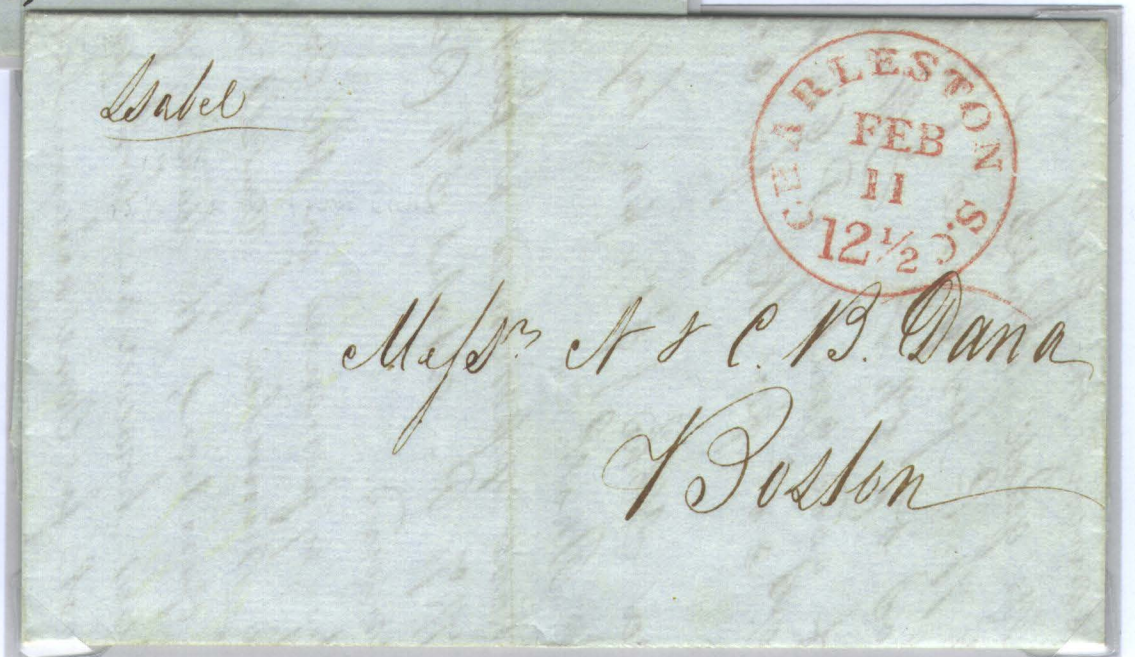 Isabel
CHARLESTON S.C.
FEB
11
12 1/2
Messrs N & C. B. Dana
Boston